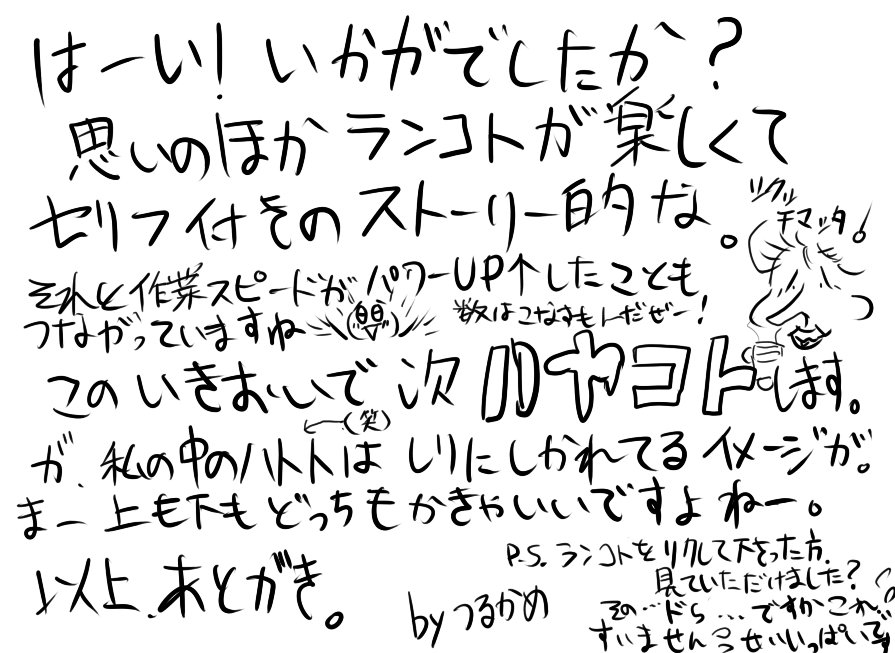 はーい! いかがでしたか?
思いのほか ランコトが楽しくて
セリフ付きの ストーリー的な。
ツクッ
チマッタ!
それと作業スピードが パワーUP↑したことも
つながっていますね
数はこなすもんだぜー!
このいきおいで 次 ルヤコト します。
(笑)
が、私の中のハトトは しりにしかれてるイメージが。
まー 上も下も どっちも かきゃいいですよ ねー。
以上、あとがき。
by つるかめ
P.S. ランコトを リクして下さった方、
見ていただけましたか?
その…ドS …ですかこれ…
すいません せいいっぱいです